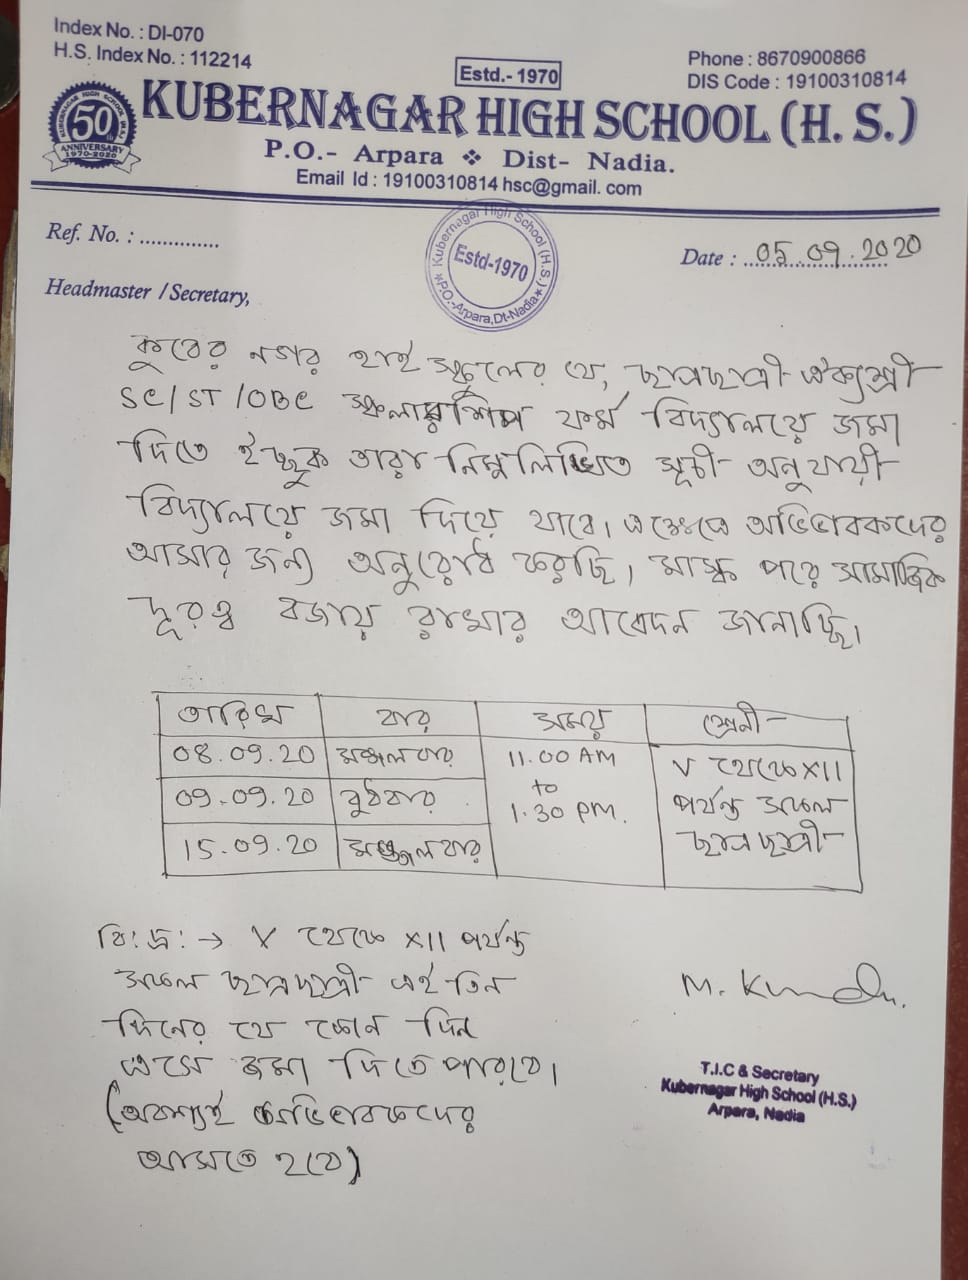 Index No. : DI-070
H.S. Index No. : 112214
Estd.- 1970
Phone : 8670900866
DIS Code : 19100310814
KUBERNAGAR HIGH SCHOOL (H. S.)
KUBERNAGAR HIGH SCHOOL (H.S.)
50
ANNIVERSARY
1970-2020
P.O.- Arpara ❖ Dist- Nadia.
Email Id : 19100310814 hsc@gmail. com
Ref. No. : ..............
Kubernagar High School (H.S.)
Estd-1970
P.O.-Arpara, Dt-Nadia
Date : 05.09.2020
Headmaster / Secretary,
কুবের নগর হাই স্কুলের যে, ছাত্রছাত্রী ঐক্যশ্রী
SC/ST/OBC স্কলারশিপ ফর্ম বিদ্যালয়ে জমা
দিতে ইচ্ছুক তারা নিম্নলিখিত সূচী অনুযায়ী
বিদ্যালয়ে জমা দিয়ে যাবে। এক্ষেত্রে অভিভাবকদের
আসার জন্য অনুরোধ করছি। মাস্ক পরে সামাজিক
দূরত্ব বজায় রাখার আবেদন জানাচ্ছি।
তারিখ বার সময় শ্রেনী
08.09.20 মঙ্গলবার 11.00 AM V থেকে XII
09.09.20 বুধবার to 1.30 PM. পর্যন্ত সকল
15.09.20 মঙ্গলবার ছাত্রছাত্রী
বি:দ্র: → V থেকে XII পর্যন্ত
সকল ছাত্রছাত্রী এই তিন
দিনের যে কোন দিন
এসে জমা দিতে পারবে।
(অবশ্যই অভিভাবকদের
আসতে হবে)
M. Kundu.
T.I.C & Secretary
Kubernagar High School (H.S.)
Arpara, Nadia